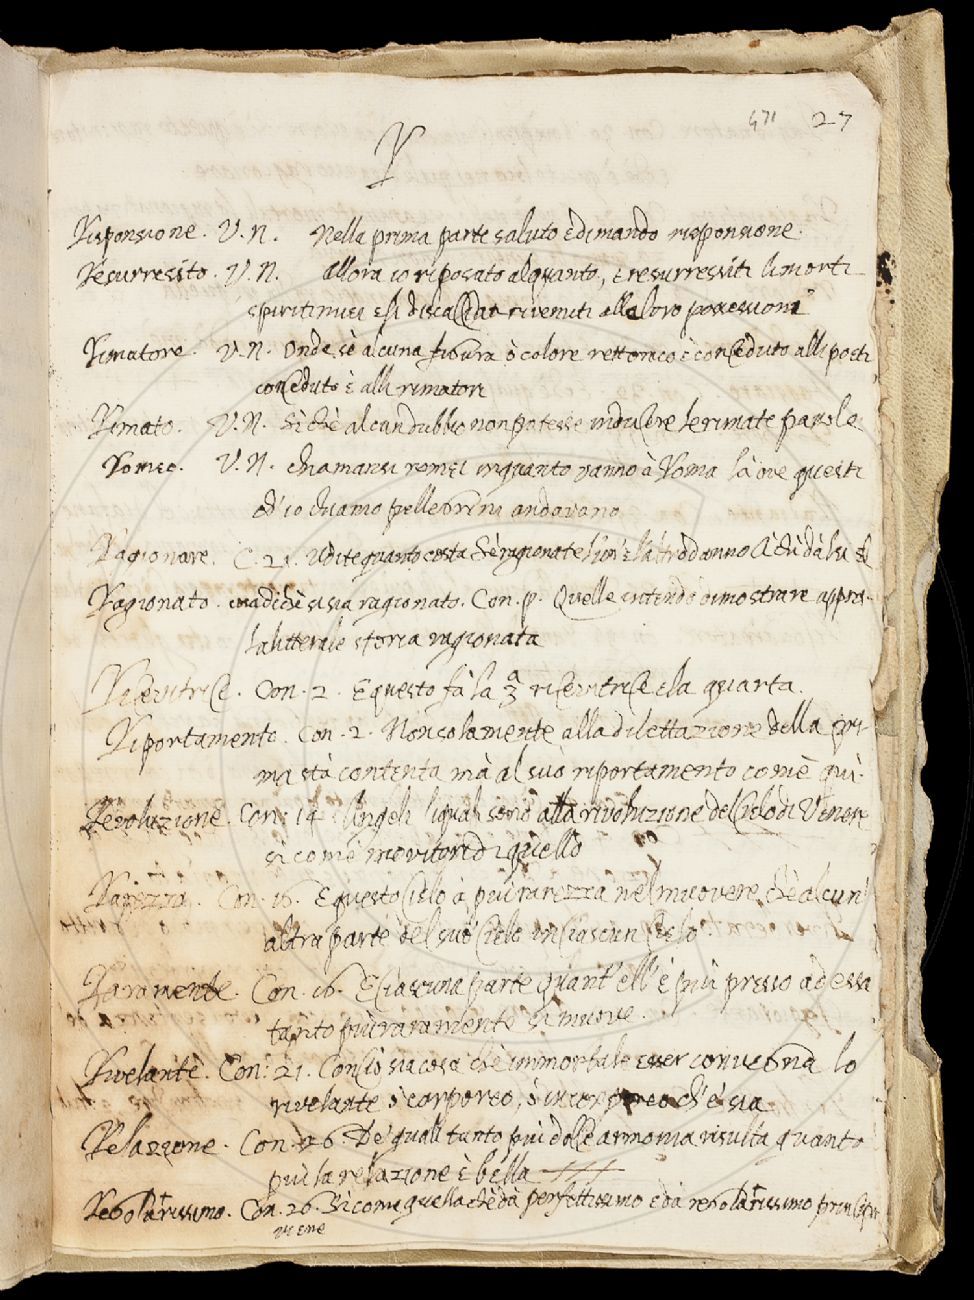 471 27
R
Risponsione. V. N. Nella prima parte saluto e dimando risponsione.
Resurressito. V. N. Allora io riposato alquanto, e resurressiti li morti
spiriti miei e li discacciati rivenuti alla loro possessioni
Rimatore. V. N. Onde se alcuna figura o colore rettorico è conceduto alli poeti
conceduto è alli rimatori
Rimato. V. N. Sì che alcun dubbio non potesse inducere le rimate parole
Romeo. V. N. Chiamansi romei in quanto vanno à Roma là ove questi
ch'io chiamo pellegrini andavano
Ragionare. C. 21. Udite quanto costa che ragionate l'un' e l'altro danno à chi dà lu
Ragionato. ma di che si sia ragionato. Con. p. Quelle intendo dimostrare appres-
la litterale storia ragionata
Ricentrice. Con. 2. E questo fà la 3a ricentrice e la quarta.
Riportamento. Con. 2. Non solamente alla dilettazione della pri-
ma stà contenta mà al suo riportamento come quì.
Revoluzione. Con. 14. Angeli li quali sono alla rivoluzione del Cielo di Venere
sì come movitori di quello
Rarezza. Con. 16. E questo Cielo à più rarezza nel muovere che alcun'
altra parte del suo Cielo in Ciascun Cielo
Raramente. Con. 16. E Ciascuna parte quant' ell' è più presso ad essa
tanto più raramente si muove.
Rivelante. Con. 21. Con Ciò sia cosa che immortale esser convegna lo
rivelante ò corporeo, ò incorporeo ch'é sia
Relazione. Con. 26. De' quali tanto più dolce armonia risulta quanto
più la relazione è bella
Regolatissimo. Con. 26. Sì come quella che dà perfettissimo e da regolatissimo principio
viene